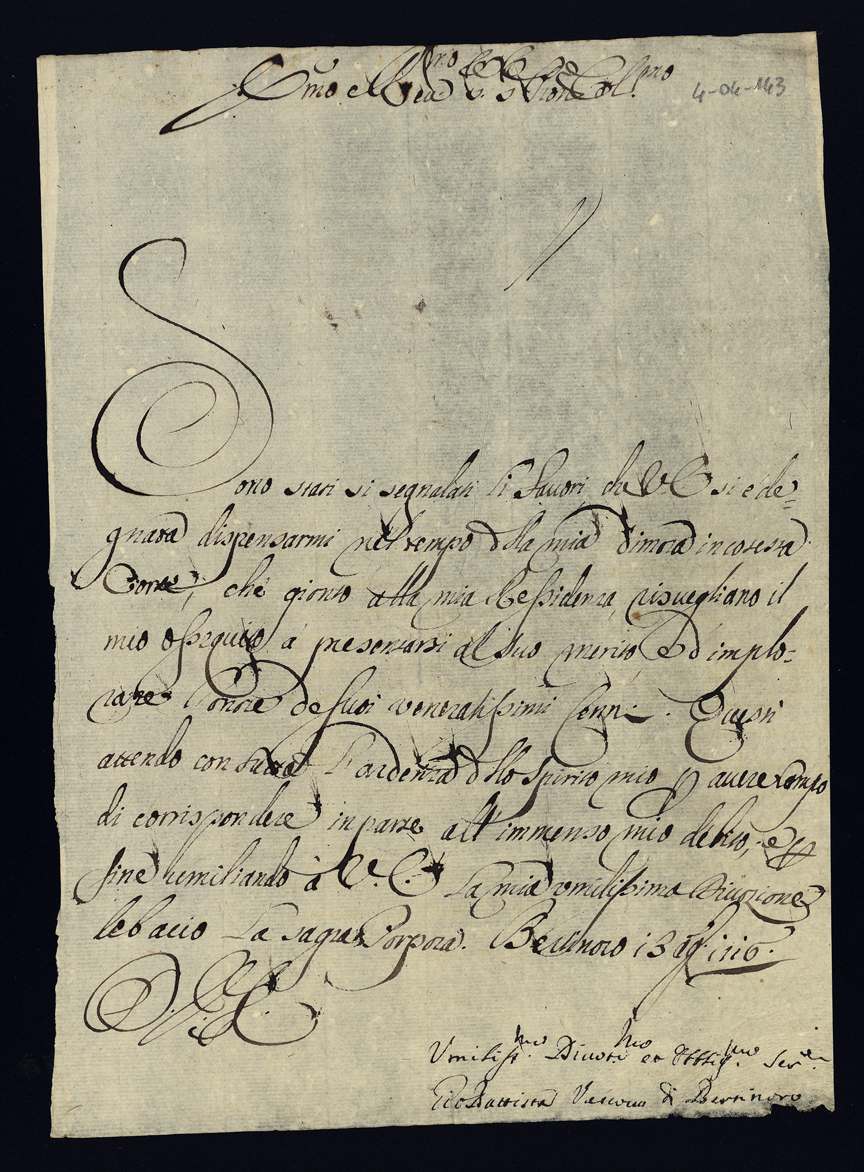 Emo e Rev.mo S. S. Pron Col.mo
4-04-143
Sono stati sì segnalati li favori, che V. E. si è de=
gnata dispensarmi nel tempo dlla mia dimora in cotesta
Corte, che gionto alla mia Residenza, risvegliano il
mio ossequio à presentarsi al suo merito, ed implo-
rare l'onore de suoi veneratissimi Cenni. Questi
attendo con tutta l'ardenza dllo spirito mio p avere campo
di corrispondere in parte all'immenso mio debito, e p
fine umiliando à V. E. la mia umilissima divozione
le bacio la sagra Porpora. Bertinoro 13
D. V. E.
Vmiliss.mo Divot.mo et Obblig.mo Ser.
Gio Battista Vescovo di Bertinoro